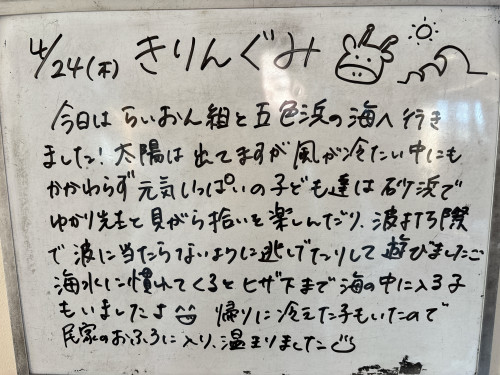 4/24(木) きりんぐみ
今日は らいおん組と 五色浜の海へ 行き
ました! 太陽は 出てますが 風が冷たい中にも
かかわらず 元気いっぱいの子ども達は 砂浜で
ゆかり先生と 貝がら拾いを楽しんだり、波打ち際
で 波に当たらないように 逃げてたりして 遊びました。
海水に慣れてくると ヒザ下まで 海の中に入る子
もいましたよ 帰りに 冷えた子もいたので
民家のおふろに入り、温まりました